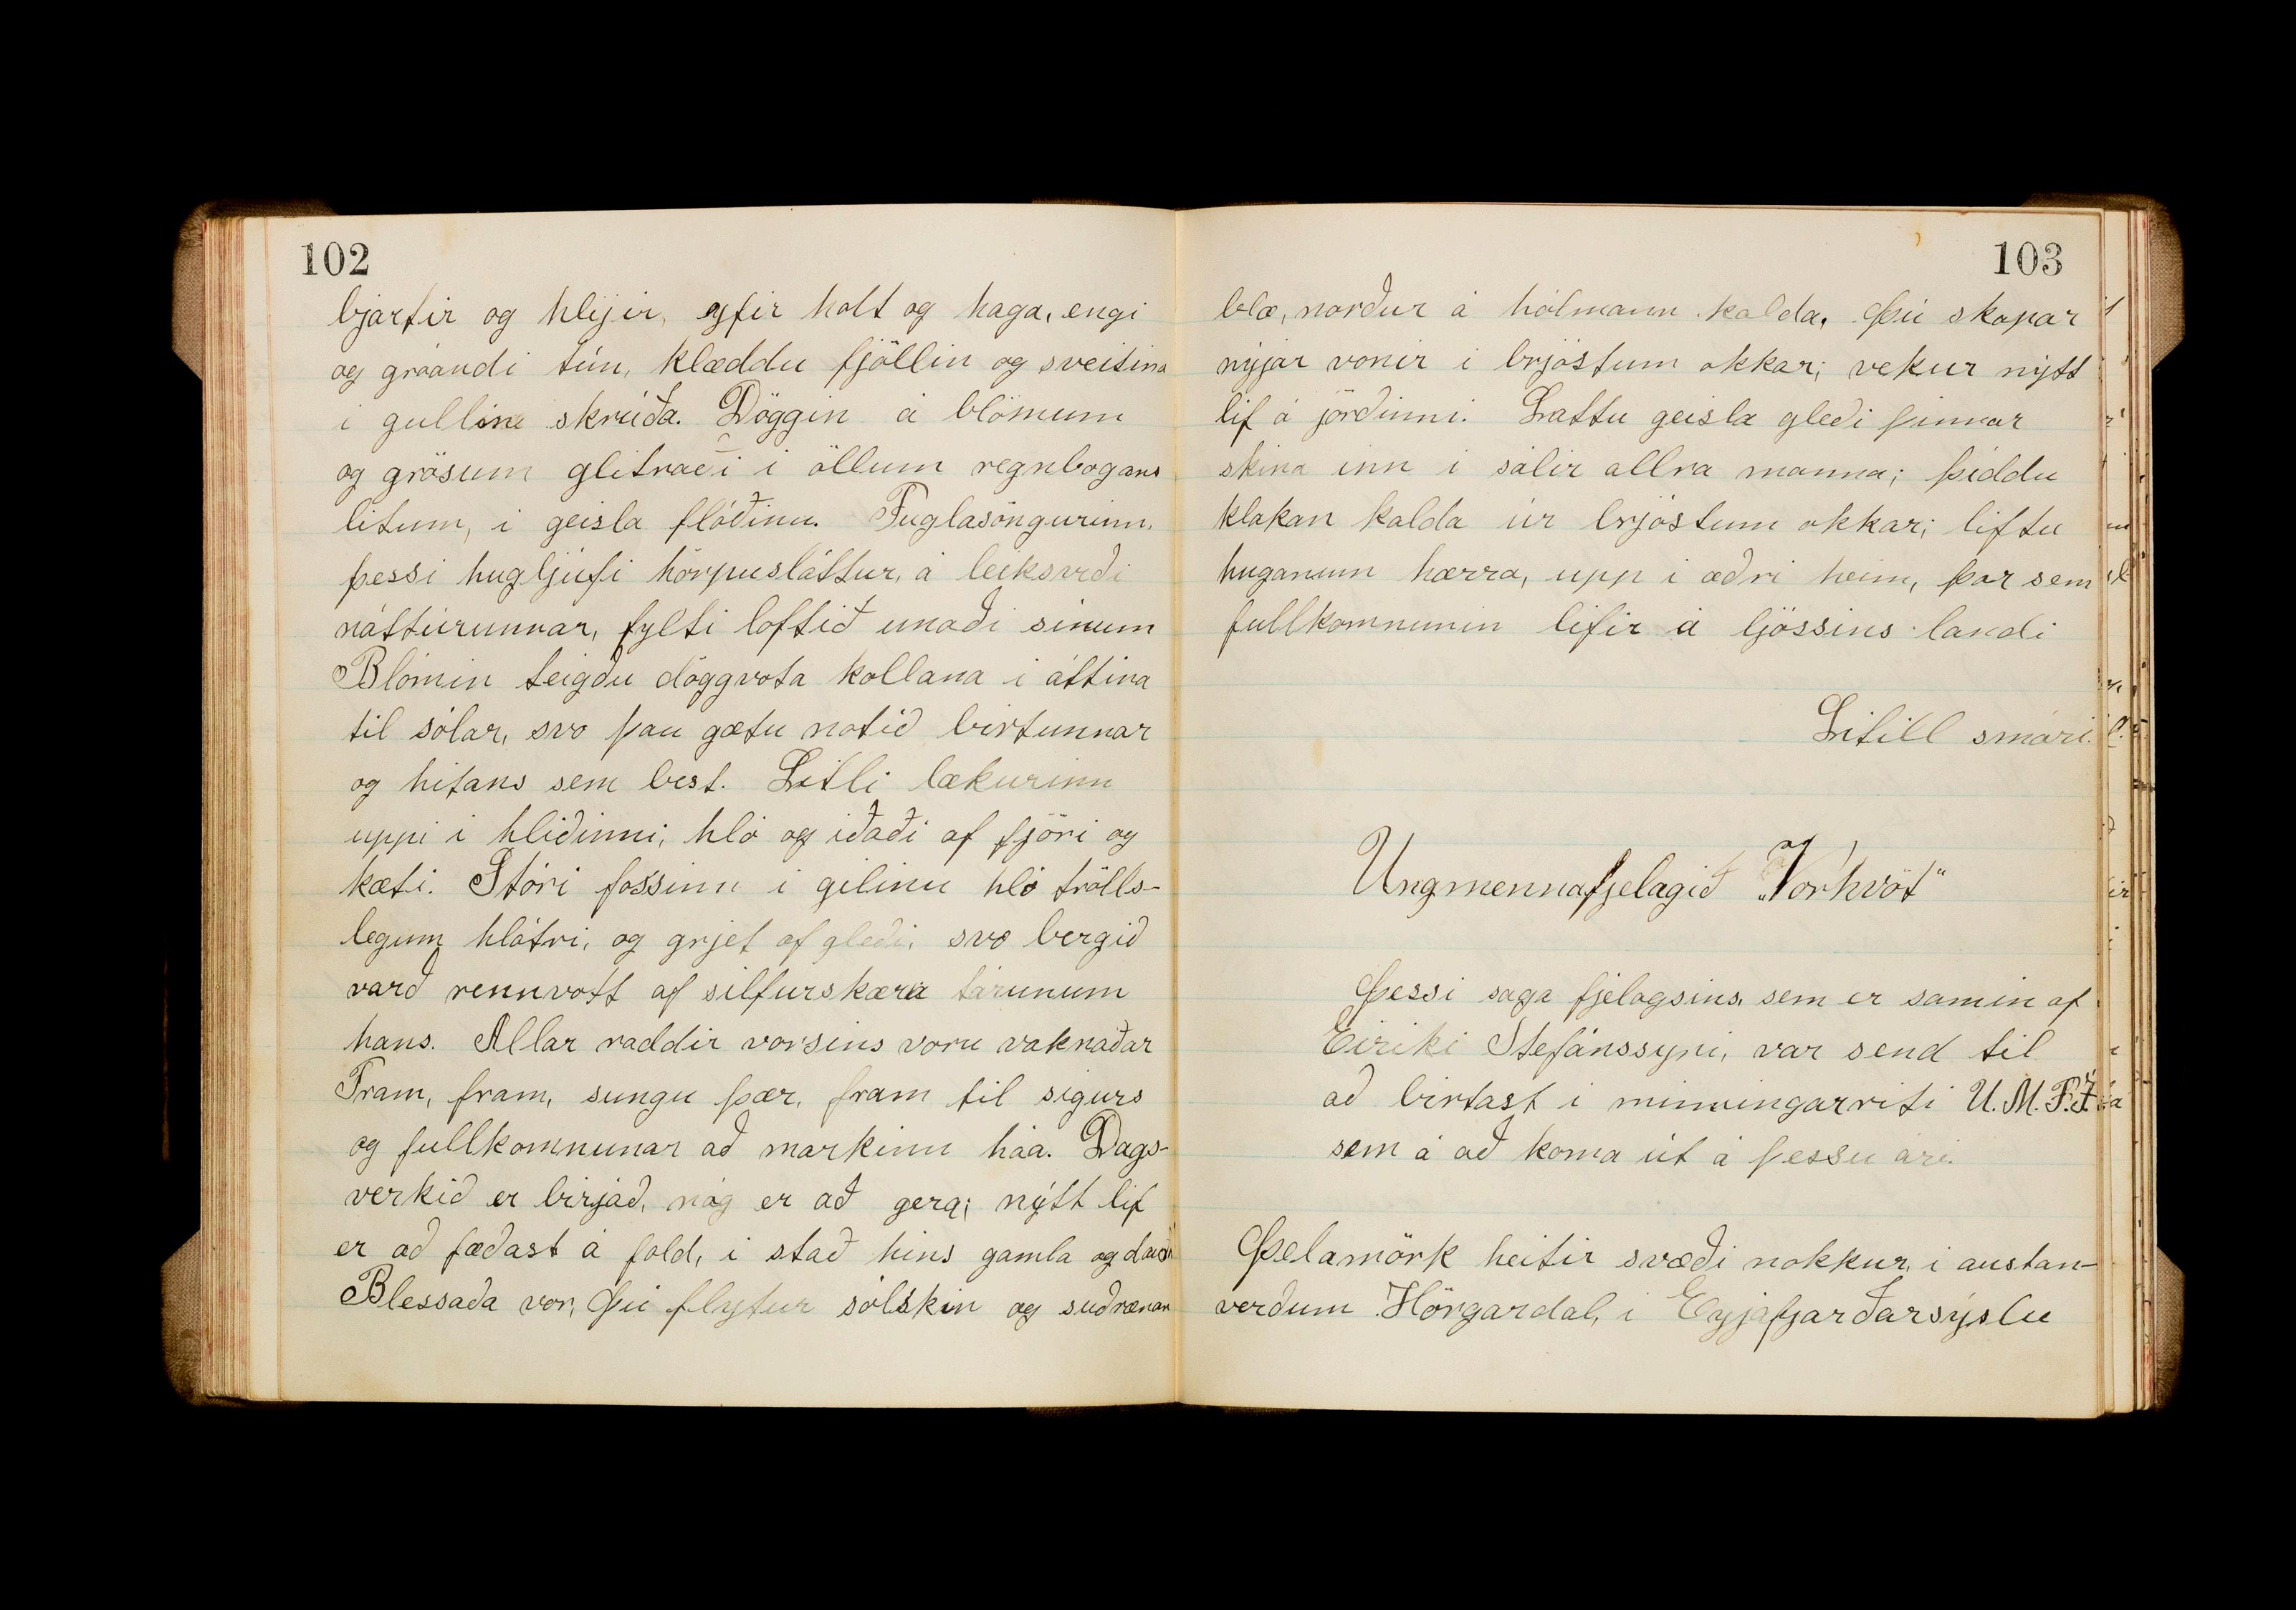 102
bjartir og hlýir, yfir holt og haga, engi
og gróandi tún, klæddu fjöllin og sveitina
i gullinn skrúða. Döggin á blómum
og grösum glitraði i öllum regnbogans
litum, i geisla flóðinu. Fuglasöngurinn,
þessi hugljúfi hörpusláttur, á leiksviði
náttúrunnar, fylti loftið unaði sínum
Blómin teigðu döggvota kollana i áttina
til sólar, svo þau gætu notið birtunnar
og hitans sem best. Litli lækurinn
uppi i hliðinni, hló og iðaði af fjöri og
kæti. Stóri fossinn i gilinu hló trölls-
legum hlátri, og grjet af gleði, svo bergið
varð rennvott af silfurskæru tárunum
hans. Allar raddir vorsins voru vaknaðar
Fram, fram, sungu þær, fram til sigurs
og fullkomnunar að markinu háa. Dags-
verkið er birjað, nóg er að gera; nýtt líf
er að fæðast á fold, i stað hins gamla og
Blessaða vor, Þú flytur sólskin og suðrænan
103
blæ, norður á hólmann kalda. Þú skapar
nýjar vonir i brjóstum okkar; vekur nýtt
líf á jörðinni. Lattu geisla gleði þinnar
skína inn i sálir allra manna; þíddu
klakan kalda úr brjóstum okkar; liftu
huganum hærra, upp i æðri heim, þar sem
fullkomnunin lifir á ljóssins landi
Litill smári.
Ungmennafjelagið „Vorhvöt"
Þessi saga fjelagsins, sem er samin af
Eiriki Stefánssyni, var send til
að birtast i minningarriti U. M. F. Í.
sem á að koma út á þessu ári.
Þelamörk heitir svæði nokkur, i austan-
verðum Hörgardal, i Eyjafjarðarsýslu